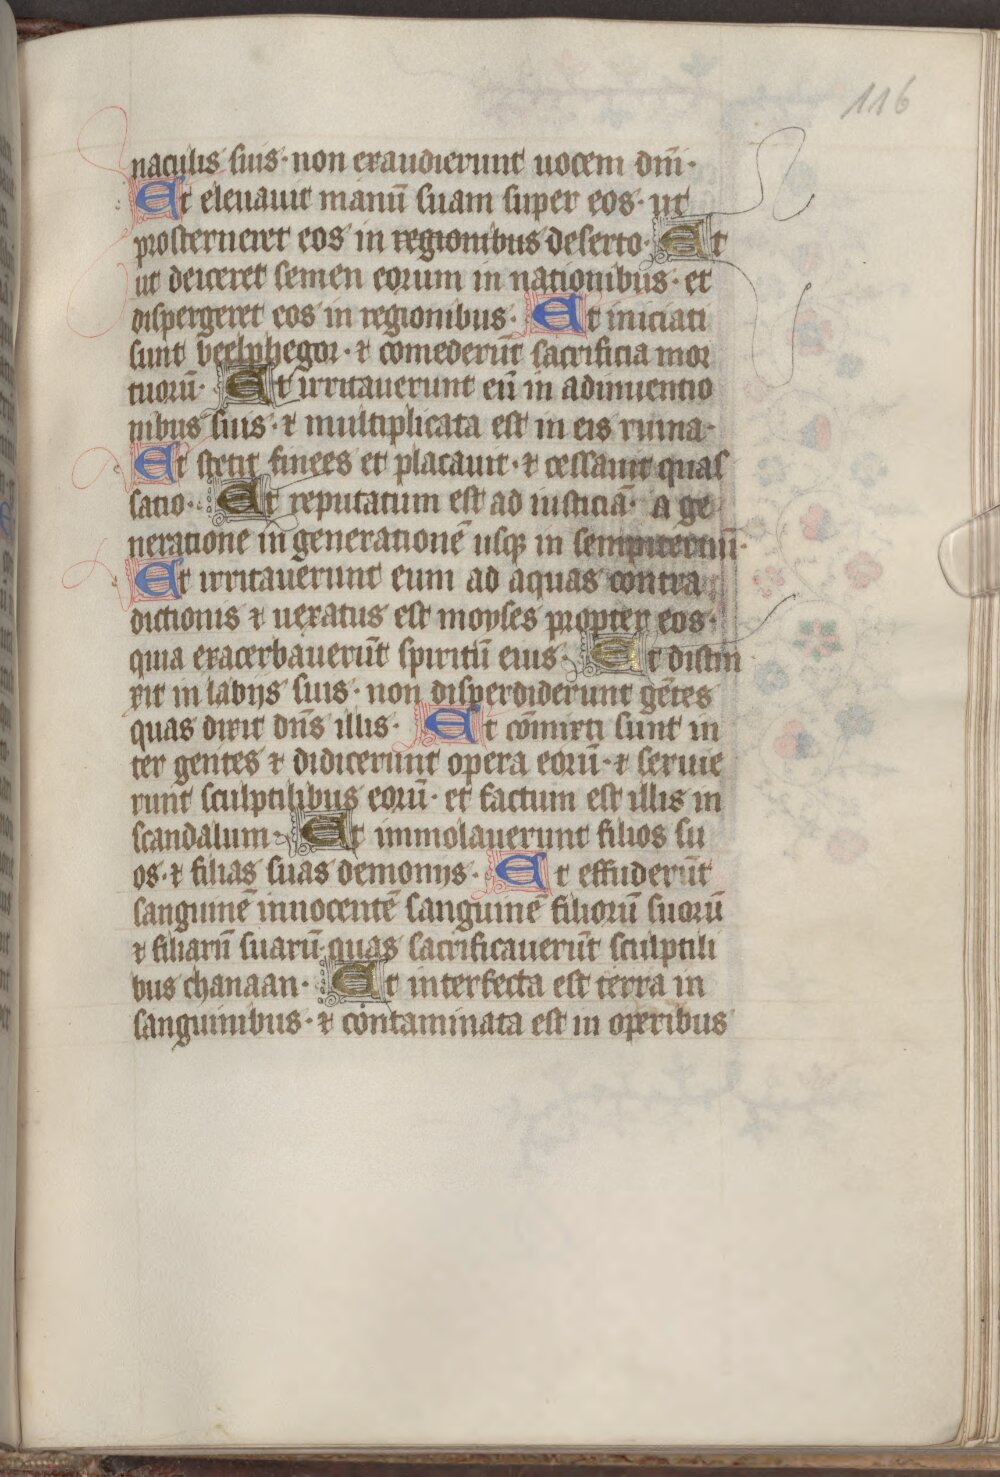 116
naculis suis· non exaudierunt uocem dn̄i·
Et eleuauit manū suam super eos· ut
prosterneret eos in regionibus deserto· Et
ut deiceret semen eorum in nationibus· et
dispergeret eos in regionibus· Et iniciati
sunt beelphegor· ⁊ comederūt sacrificia mor
tuorū· Et irritauerunt eū in adinuentio
nibus suis· ⁊ multiplicata est in eis ruina·
Et stetit finees et placauit· ⁊ cessauit quas
satio· Et reputatum est ad iusticiā· a ge
neratione in generationē usqꝫ in sempiternū·
Et irritauerunt eum ad aquas contra
dictionis ⁊ uexatus est moyses propter eos·
quia exacerbauerūt spiritū eius· Et distin
xit in labijs suis· non disperdiderunt gētes
quas dixit dn̄s illis· Et cōmixti sunt in
ter gentes ⁊ didicerunt opera eorū· ⁊ seruie
runt sculptilibus eorū· et factum est illis in
scandalum· Et immolauerunt filios su
os· ⁊ filias suas demonijs· Et effuderūt
sanguinē innocentē sanguinē filiorū suorū
⁊ filiarū suarū· quas sacrificauerūt sculptili
bus chanaan· Et interfecta est terra in
sanguinibus· ⁊ contaminata est in operibus